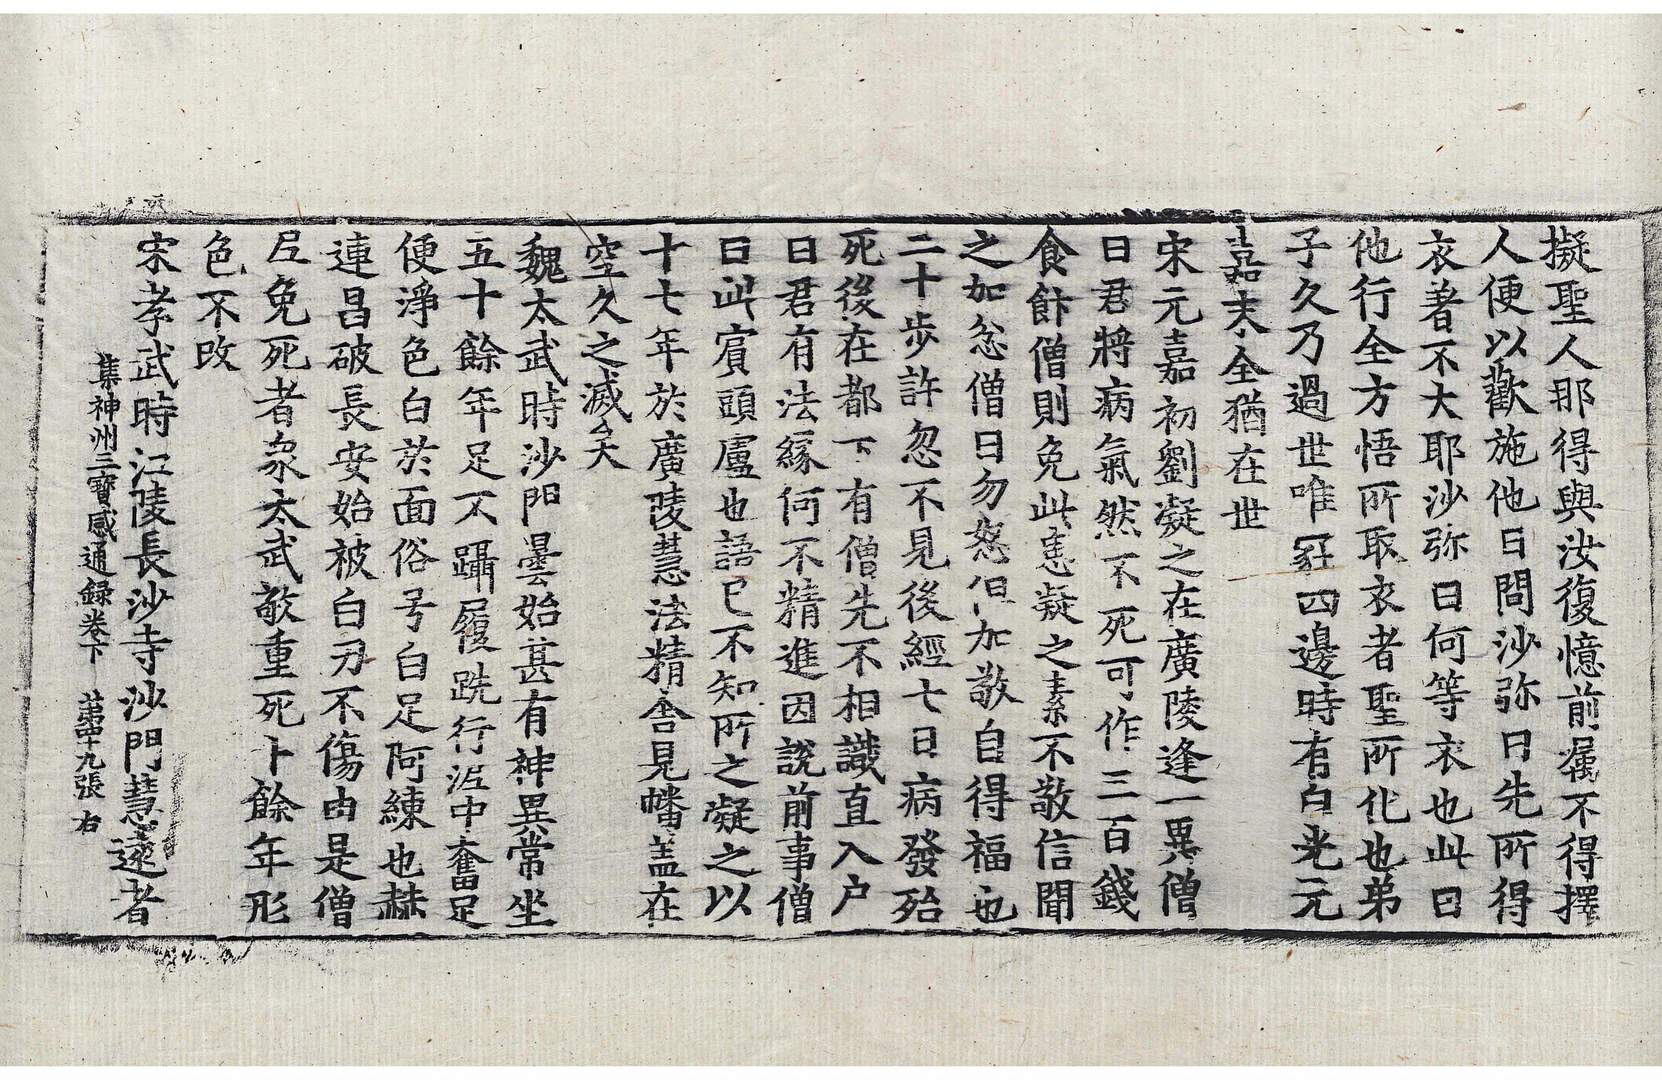 擬聖人那得與汝復憶前囑不得擇
人便以歡施他日問沙弥曰先所得
衣著不大耶沙弥曰何等衣也此曰
他行全方悟所取衣者聖所化也弟
子久乃過世唯冢四邊時有白光元
嘉末全猶在世
宋元嘉初劉凝之在廣陵逢一異僧
曰君將病氣然不死可作三百錢
食飰僧則免此恚凝之素不敬信聞
之加忿僧曰勿怒但加敬自得福也
二十步許忽不見後經七日病發殆
死後在都下有僧先不相識直入户
曰君有法緣何不精進因說前事僧
曰此賓頭盧也語已不知所之凝之以
十七年於廣陵慧法精舍見幡盖在
空久之滅矣
魏太武時沙門曇始甚有神異常坐
五十餘年足不躡履跣行泥中奮足
便淨色白於面俗号白足阿練也赫
連昌破長安始被白刃不傷由是僧
尼免死者衆太武敬重死十餘年形
色不改
宋孝武時江陵長沙寺沙門慧遠者
集神州三寶感通録卷下　第十九張　右